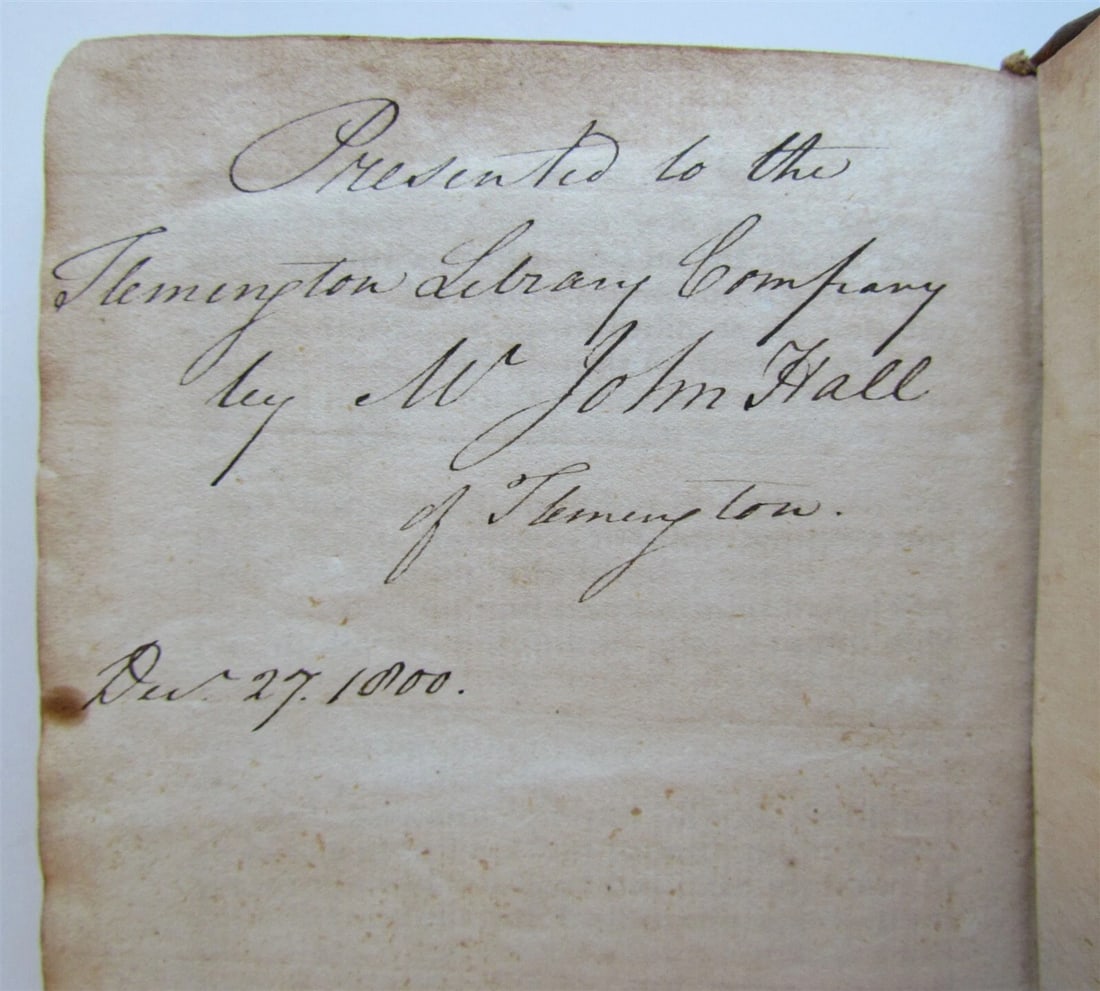 Presented to the
Flemington Library Company
by Mr John Hall
of Flemington.
Decr 27. 1800.